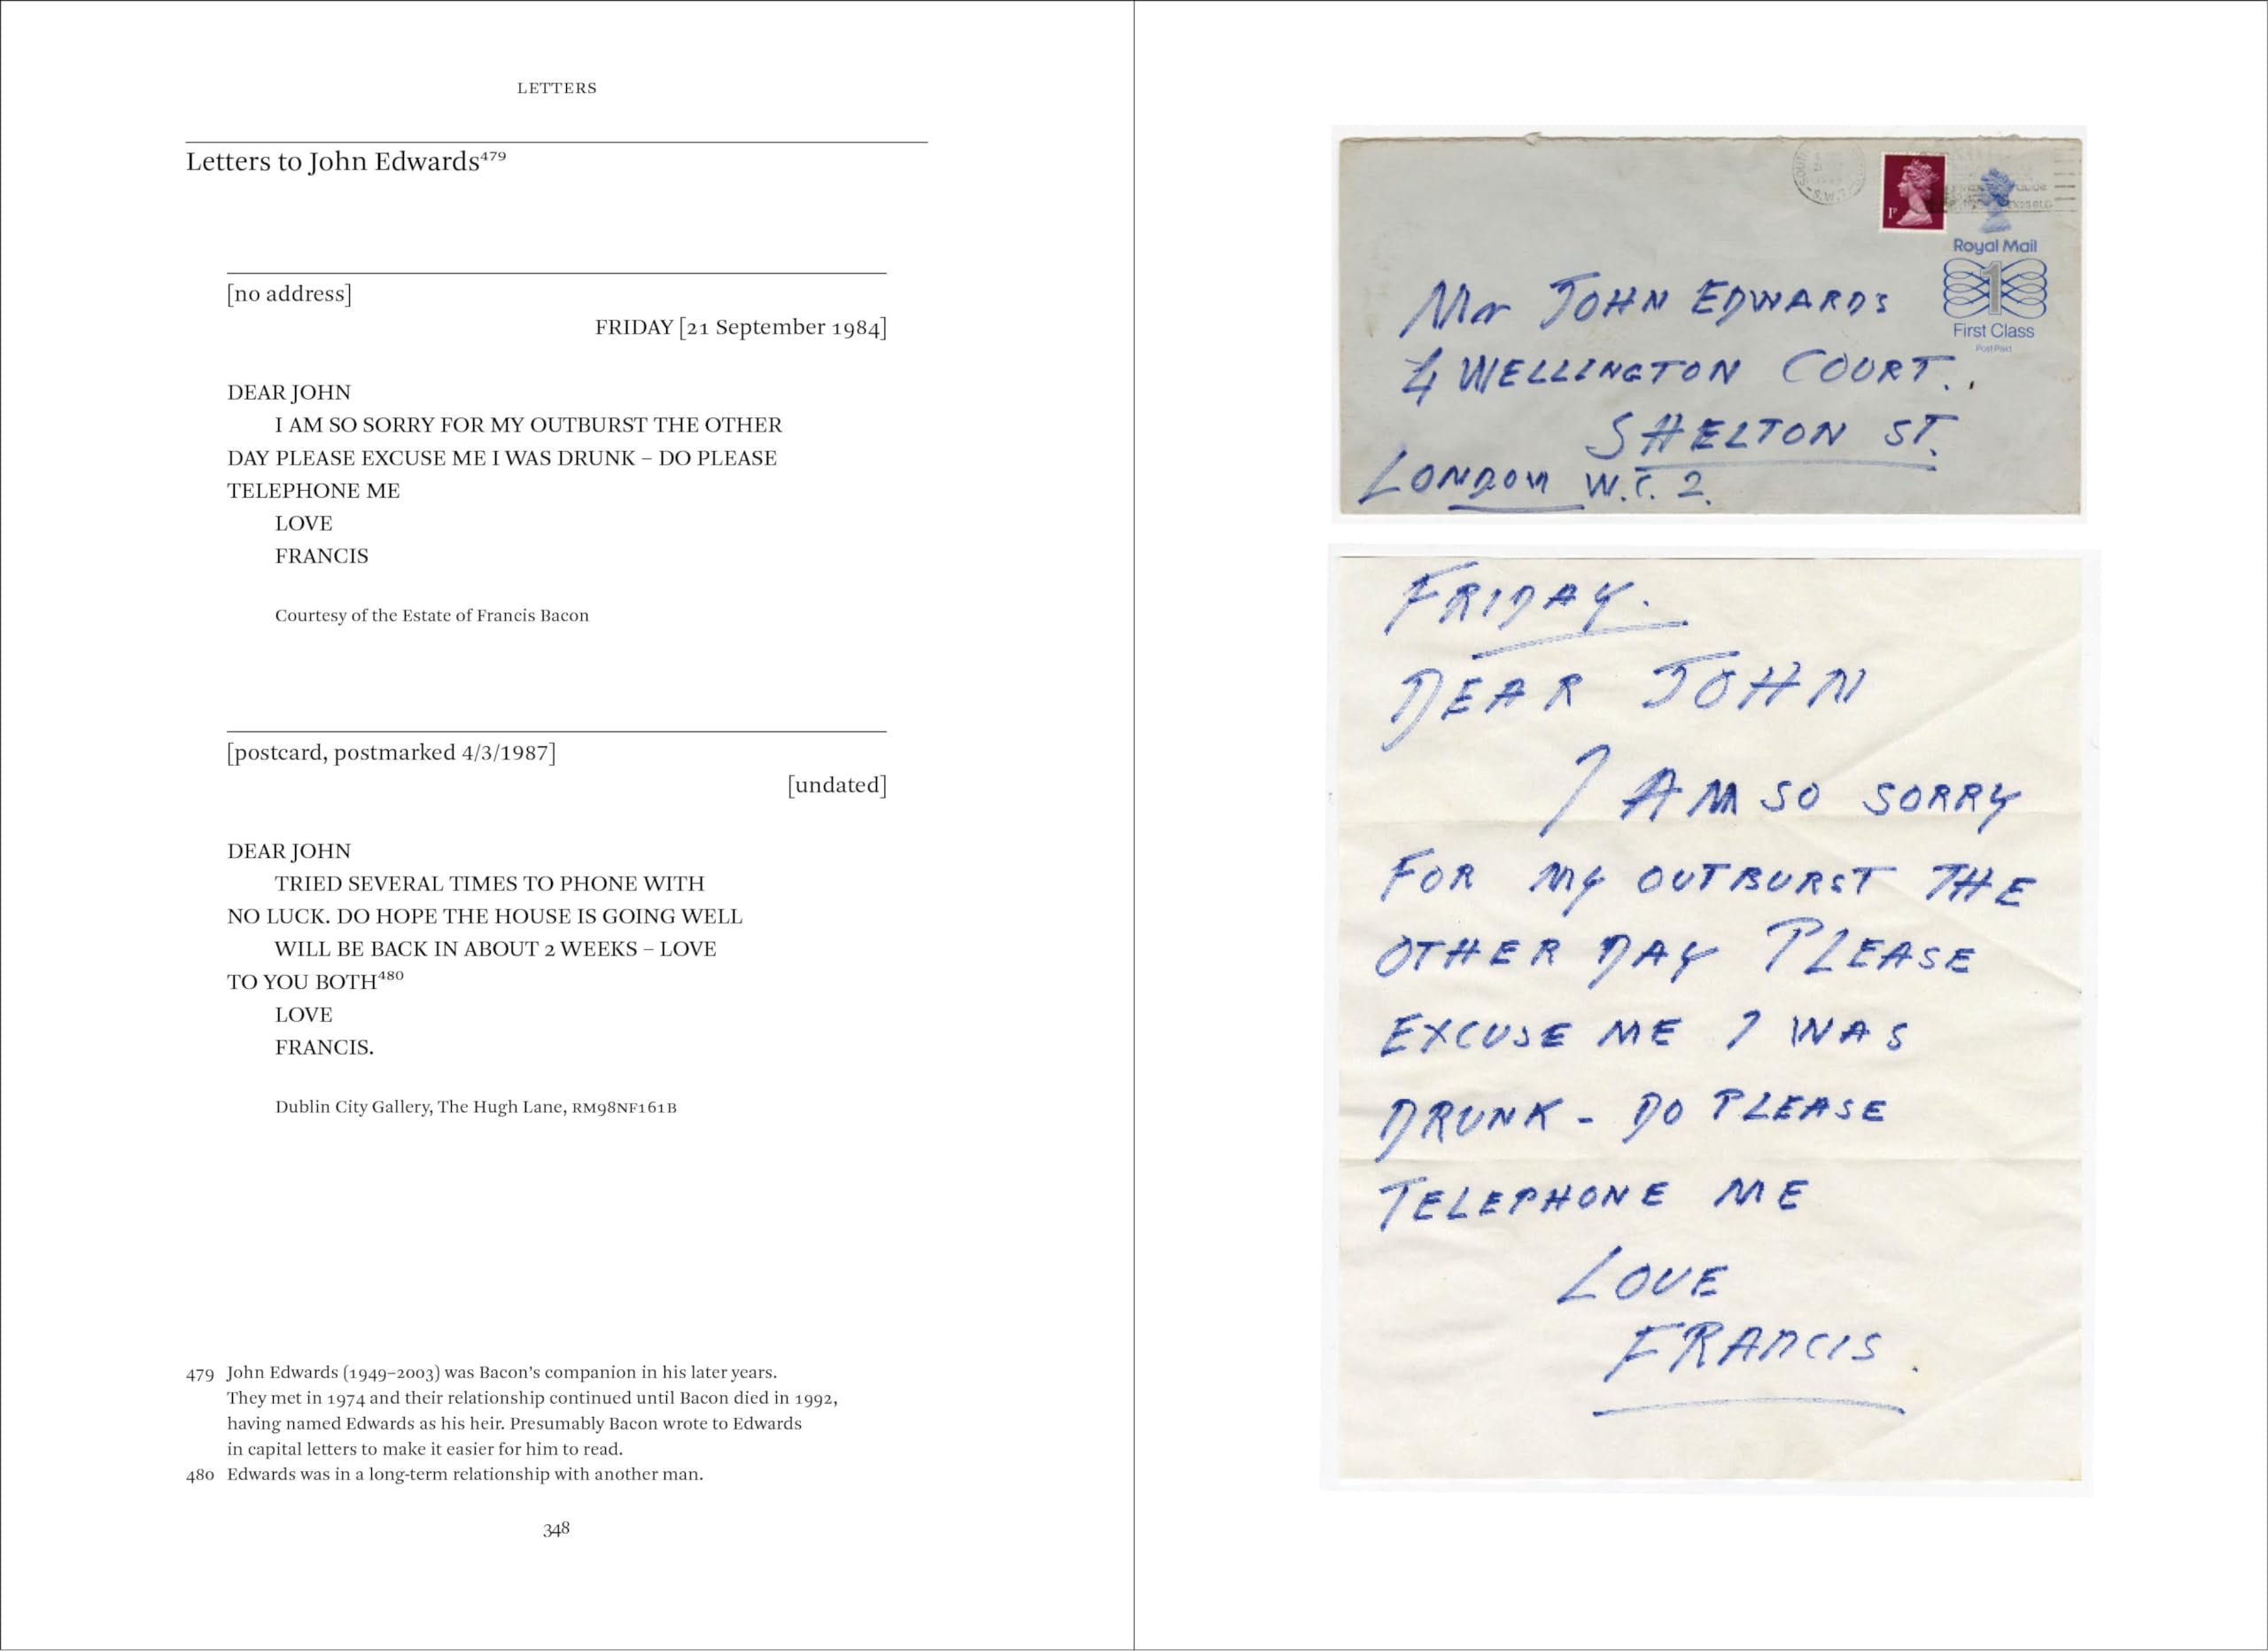 LETTERS
Letters to John Edwards⁴⁷⁹
[no address]
FRIDAY [21 September 1984]
DEAR JOHN
I AM SO SORRY FOR MY OUTBURST THE OTHER
DAY PLEASE EXCUSE ME I WAS DRUNK – DO PLEASE
TELEPHONE ME
LOVE
FRANCIS
Courtesy of the Estate of Francis Bacon
[postcard, postmarked 4/3/1987]
[undated]
DEAR JOHN
TRIED SEVERAL TIMES TO PHONE WITH
NO LUCK. DO HOPE THE HOUSE IS GOING WELL
WILL BE BACK IN ABOUT 2 WEEKS – LOVE
TO YOU BOTH⁴⁸⁰
LOVE
FRANCIS.
Dublin City Gallery, The Hugh Lane, RM98NF161B
479 John Edwards (1949–2003) was Bacon’s companion in his later years.
They met in 1974 and their relationship continued until Bacon died in 1992,
having named Edwards as his heir. Presumably Bacon wrote to Edwards
in capital letters to make it easier for him to read.
480 Edwards was in a long-term relationship with another man.
348
1P
Royal Mail
1
First Class
Post Paid
Mr JOHN EDWARDS
4 WELLINGTON COURT.
SHELTON ST.
LONDON W.C. 2.
FRIDAY.
DEAR JOHN
I AM SO SORRY
FOR MY OUTBURST THE
OTHER DAY PLEASE
EXCUSE ME I WAS
DRUNK - DO PLEASE
TELEPHONE ME
LOVE
FRANCIS.